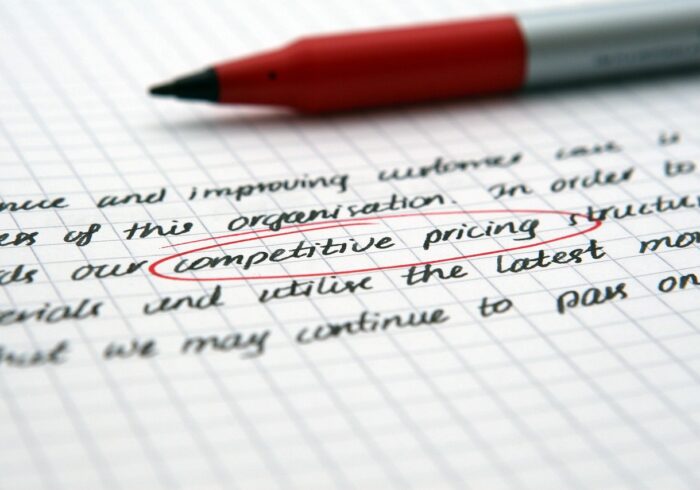 nce and improving customer care is
ers of this organisation. In order to
ds our competitive pricing structur
erials and utilise the latest mo
hat we may continue to pass on